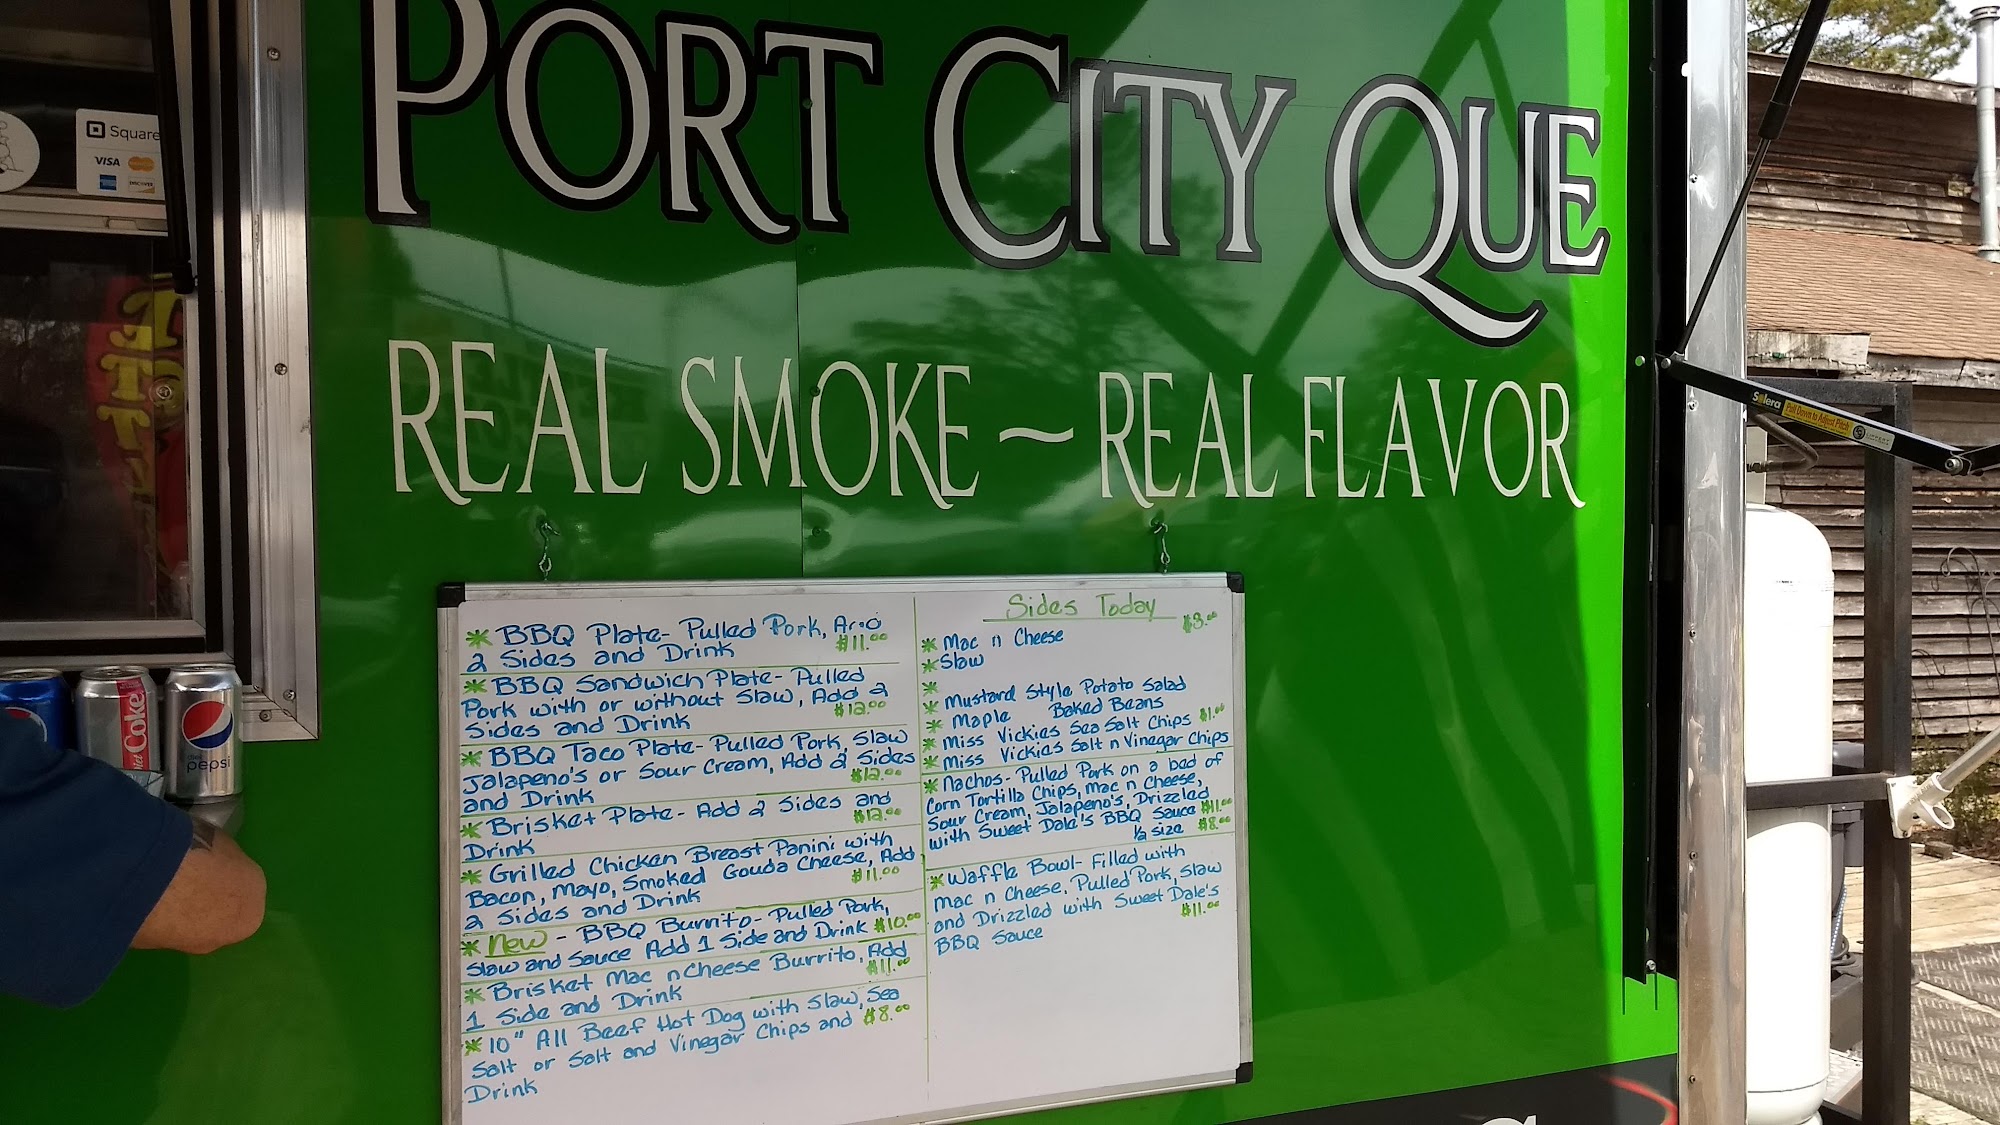 PORT CITY QUE
REAL SMOKE ~ REAL FLAVOR
Square
VISA
DISCOVER
Diet Coke
diet
pepsi
Solera
Pull Down to Adjust Pitch
* BBQ Plate- Pulled Pork,
2 Sides and Drink $11.00
* BBQ Sandwich Plate- Pulled
Pork with or without Slaw, Add 2
Sides and Drink $12.00
* BBQ Taco Plate- Pulled Pork, Slaw
Jalapeno's or Sour Cream, Add 2 Sides
and Drink $12.00
* Brisket Plate- Add 2 Sides and
Drink $12.00
* Grilled Chicken Breast Panini with
Bacon, Mayo, Smoked Gouda Cheese, Add
2 Sides and Drink $11.00
* New - BBQ Burrito- Pulled Pork,
Slaw and Sauce Add 1 Side and Drink $10.00
* Brisket Mac n Cheese Burrito, Add
1 Side and Drink $11.00
* 10" All Beef Hot Dog with Slaw, Sea
Salt or Salt and Vinegar Chips and $8.00
Drink
Sides Today
$3.00
* Mac n Cheese
* Slaw
*
* Mustard Style Potato Salad
* Maple Baked Beans
* Miss Vickies Sea Salt Chips $1.00
* Miss Vickies Salt n Vinegar Chips
* Nachos- Pulled Pork on a bed of
Corn Tortilla Chips, Mac n Cheese,
Sour Cream, Jalapeno's, Drizzled
with Sweet Dale's BBQ Sauce $11.00
1/2 size $8.00
* Waffle Bowl- Filled with
Mac n Cheese, Pulled Pork, Slaw
and Drizzled with Sweet Dale's
BBQ Sauce $11.00